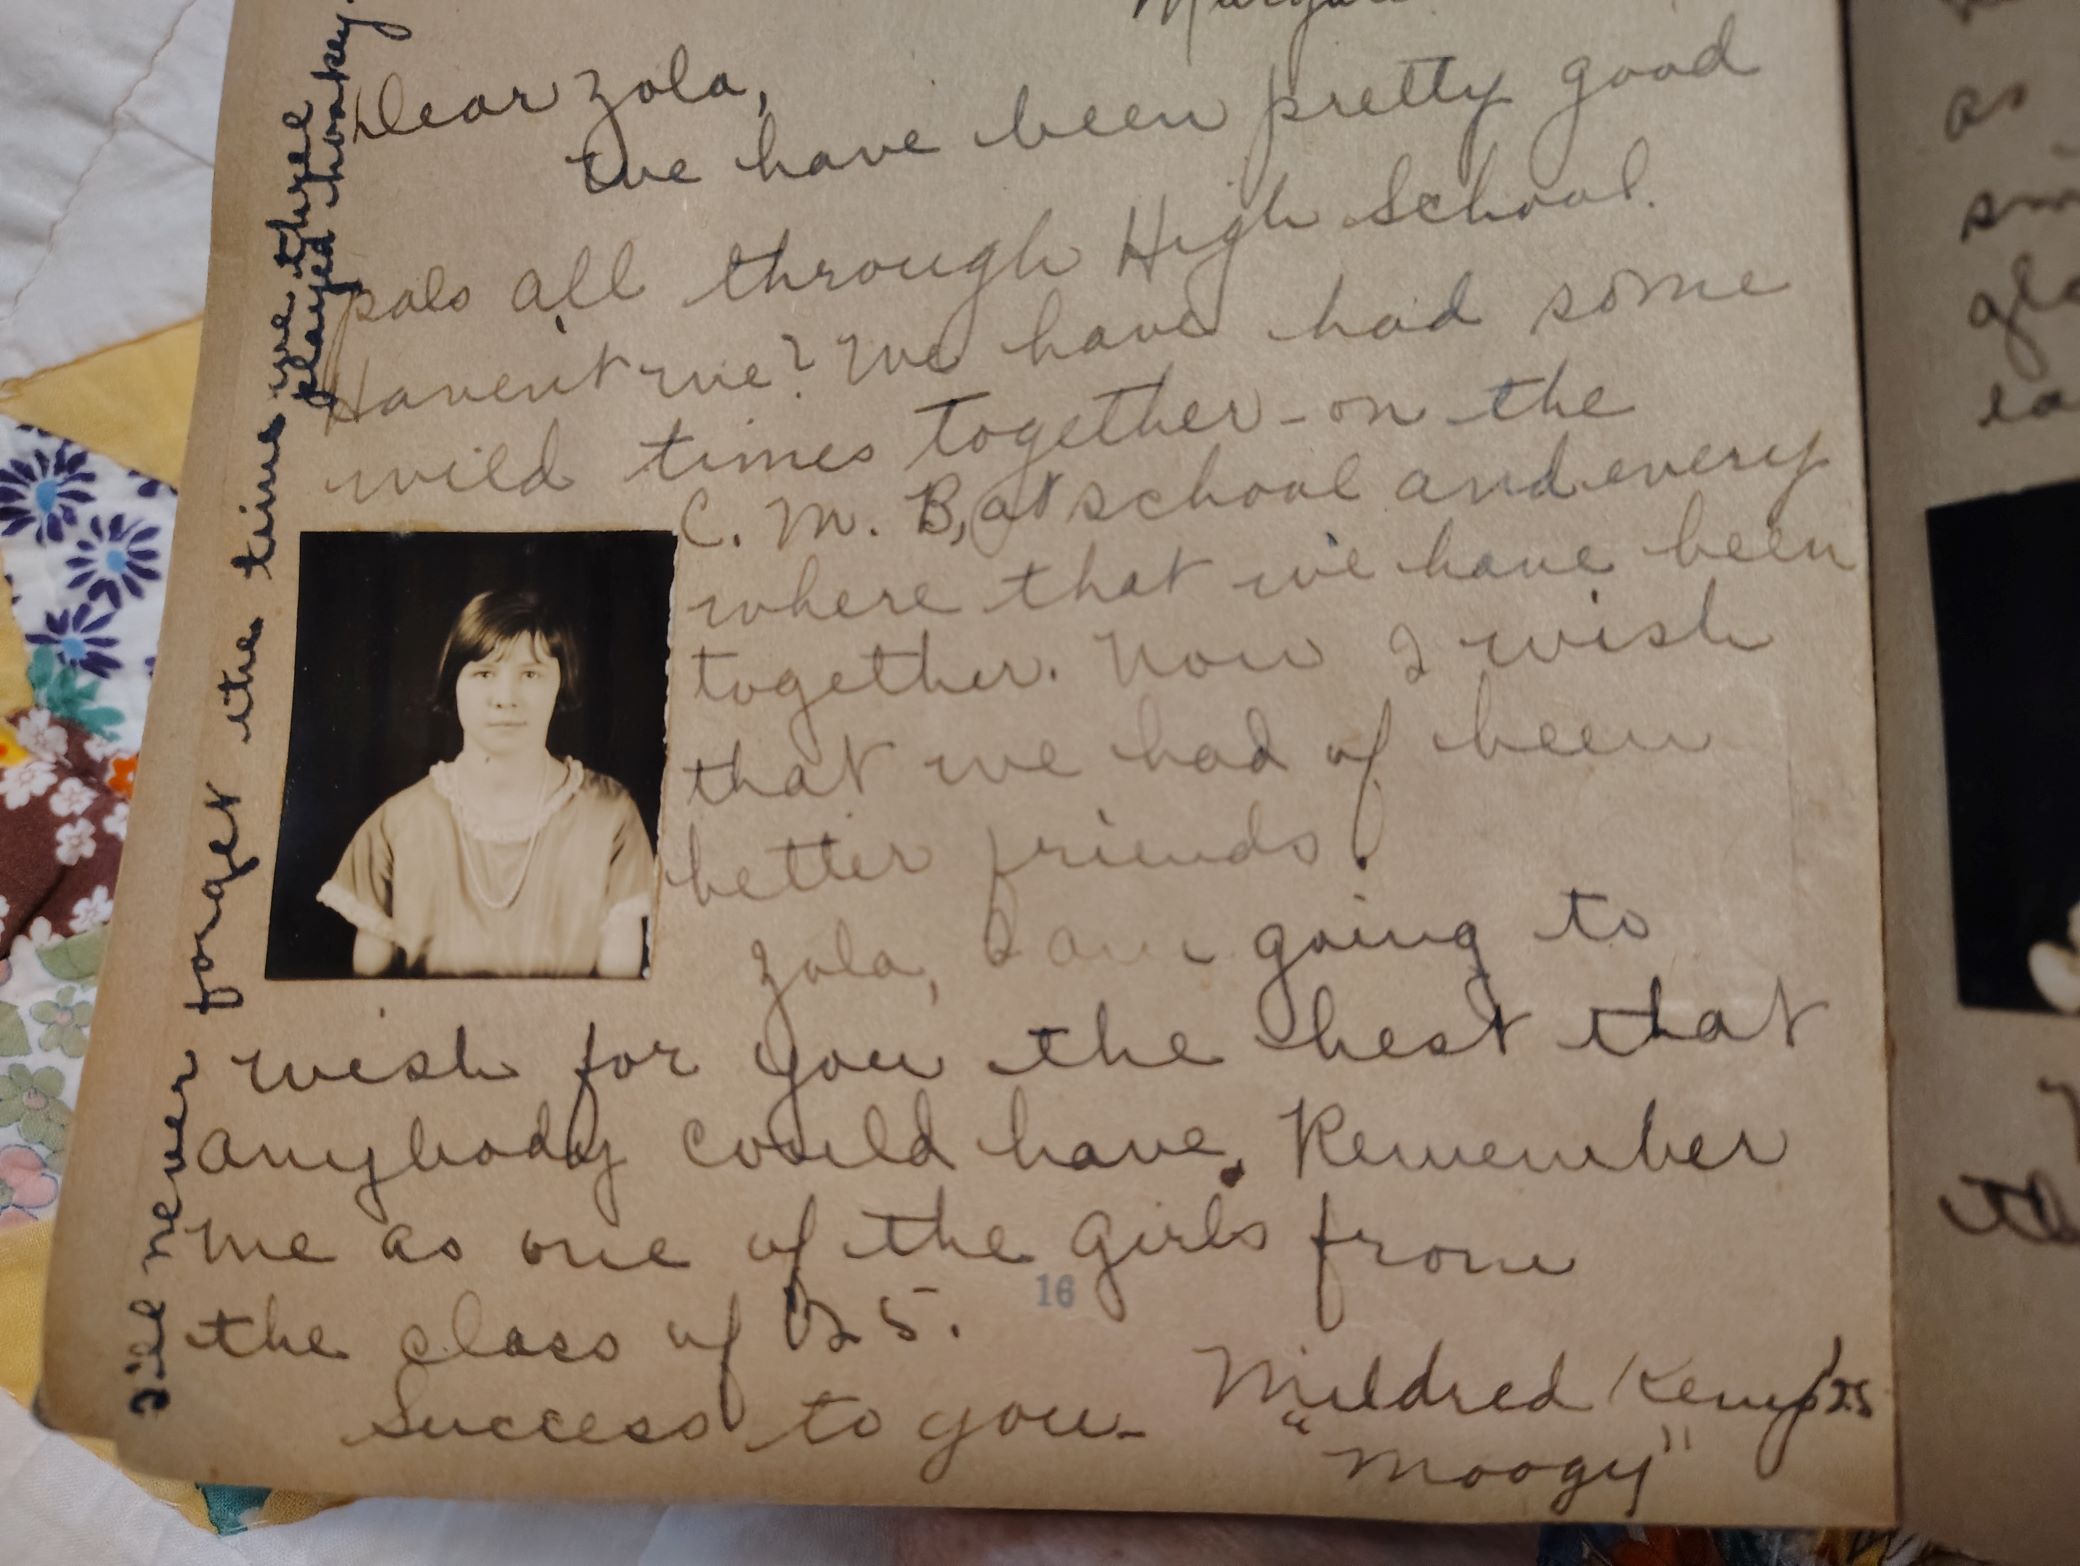 Dear Zola,
We have been pretty good
pals all through High School.
Haven't we? We have had some
wild times together - on the
C. M. B, at school and every
where that we have been
together. Now I wish
that we had of been
better friends.
Zola, I am going to
wish for you the best that
anybody could have. Remember
me as one of the girls from
the class of '25.
16
Success to you-
Mildred Kemp '25
"Moogy"
I'll never forget the time we three
played hookey.
as